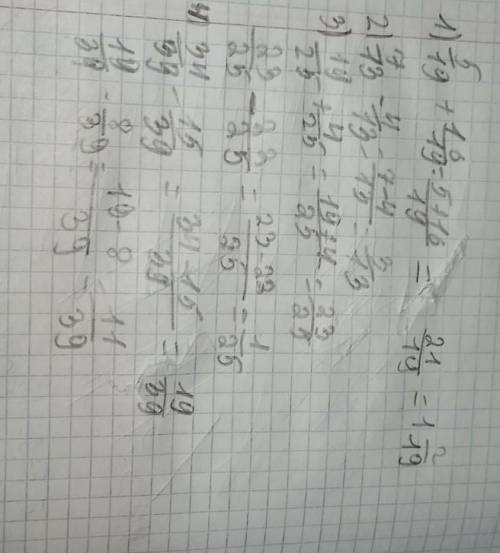 1) 5/19 + 16/19 = 5+16/19 = 21/19 = 1 2/19
2) 7/13 - 4/13 = 7-4/13 = 3/13
3) 19/25 + 4/25 = 19+4/25 = 23/25
23/25 - 22/25 = 23-22/25 = 1/25
4) 34/39 - 15/39 = 34-15/39 = 19/39
19/39 - 8/39 = 19-8/39 = 11/39